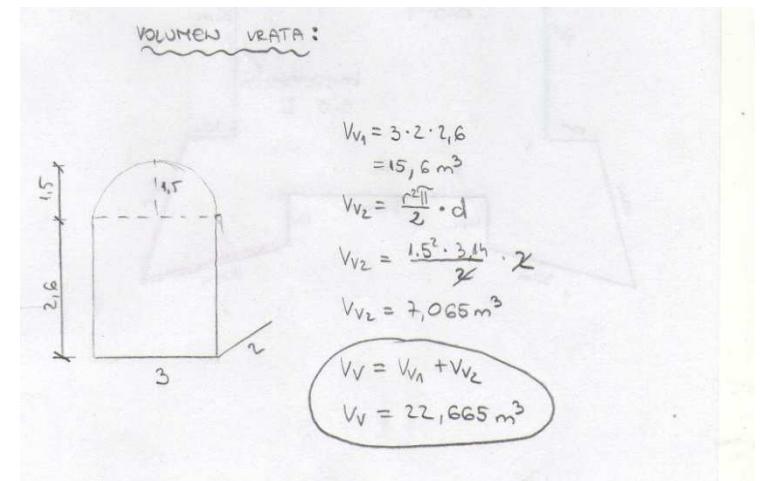 VOLUMEN VRATA:
1,5
1,5
2,6
3
2
V_V₁ = 3·2·2,6
= 15,6 m³
V_V₂ = r²π/2 · d
V_V₂ = 1.5²·3,14/2 · 2
V_V₂ = 7,065 m³
V_V = V_V₁ + V_V₂
V_V = 22,665 m³